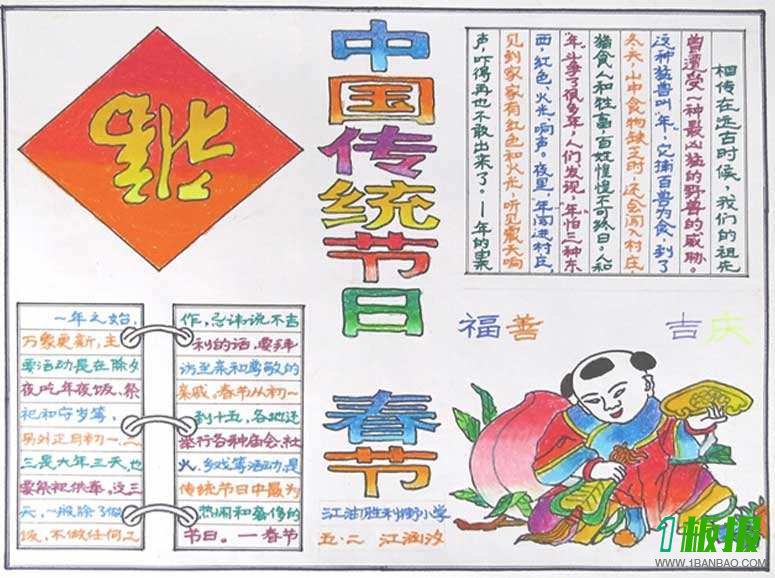 福
中国传统节日 春节
相传在远古时候，我们的祖先
曾遭受一种最凶猛的野兽的威胁。
这种猛兽叫‘年’，它捕百兽为食，到了
冬天，山中食物缺乏时，还会闯入村庄，
猎食人和牲畜，百姓惶惶不可终日。人和
‘年’斗争了很多年，人们发现，‘年’怕三种东
西，红色、火光、响声。夜里，年闯进村庄，
见到家家有红色和火光，听见震天响
声，吓得再也不敢出来了。——年的由来
一年之始，
万象更新，主
要活动是在除夕
夜吃年夜饭、祭
祀和守岁等，
另外正月初一、二、
三是大年三天，也
要祭祀供奉。这三
天，一般除了做
饭，不做任何工
作，忌讳说不吉
利的话，要拜
访至亲和尊敬的
亲戚。春节从初一
到十五，各地还
举行各种庙会、社
火、乡戏等活动，是
传统节日中最为
热闹和奢侈的
节日。——春节
福善 吉庆
江油胜利街小学
五·二 江润汐
1板报
WWW.1BANBAO.COM